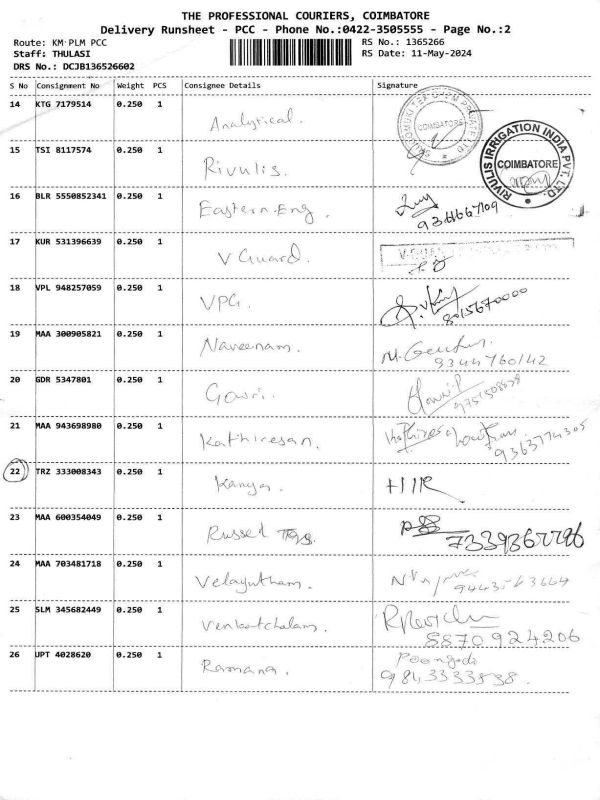 THE PROFESSIONAL COURIERS, COIMBATORE
Delivery Runsheet - PCC - Phone No.:0422-3505555 - Page No.:2
Route: KM-PLM PCC
RS No.: 1365266
Staff: THULASI
RS Date: 11-May-2024
DRS No.: DCJB136526602
S No Consignment No Weight PCS Consignee Details Signature
14 KTG 7179514 0.250 1 Analytical.
COIMBATORE
15 TSI 8117574 0.250 1 Rivulis.
RIVULIS IRRIGATION INDIA PVT. LTD. COIMBATORE
16 BLR 5550852341 0.250 1 Eastern.Eng.
17 KUR 531396639 0.250 1 V Guard.
18 VPL 948257059 0.250 1 VPG.
8015670000
19 MAA 300905821 0.250 1 Naveenam.
9344760142
20 GDR 5347801 0.250 1 Gowri.
21 MAA 943698980 0.250 1 Kathiresan.
9363774305
22 TRZ 333008343 0.250 1 Kanya.
23 MAA 600354049 0.250 1
24 MAA 703481718 0.250 1 Velayutham.
25 SLM 345682449 0.250 1 Venkatchalam.
8870924206
26 UPT 4028620 0.250 1 Ramana.